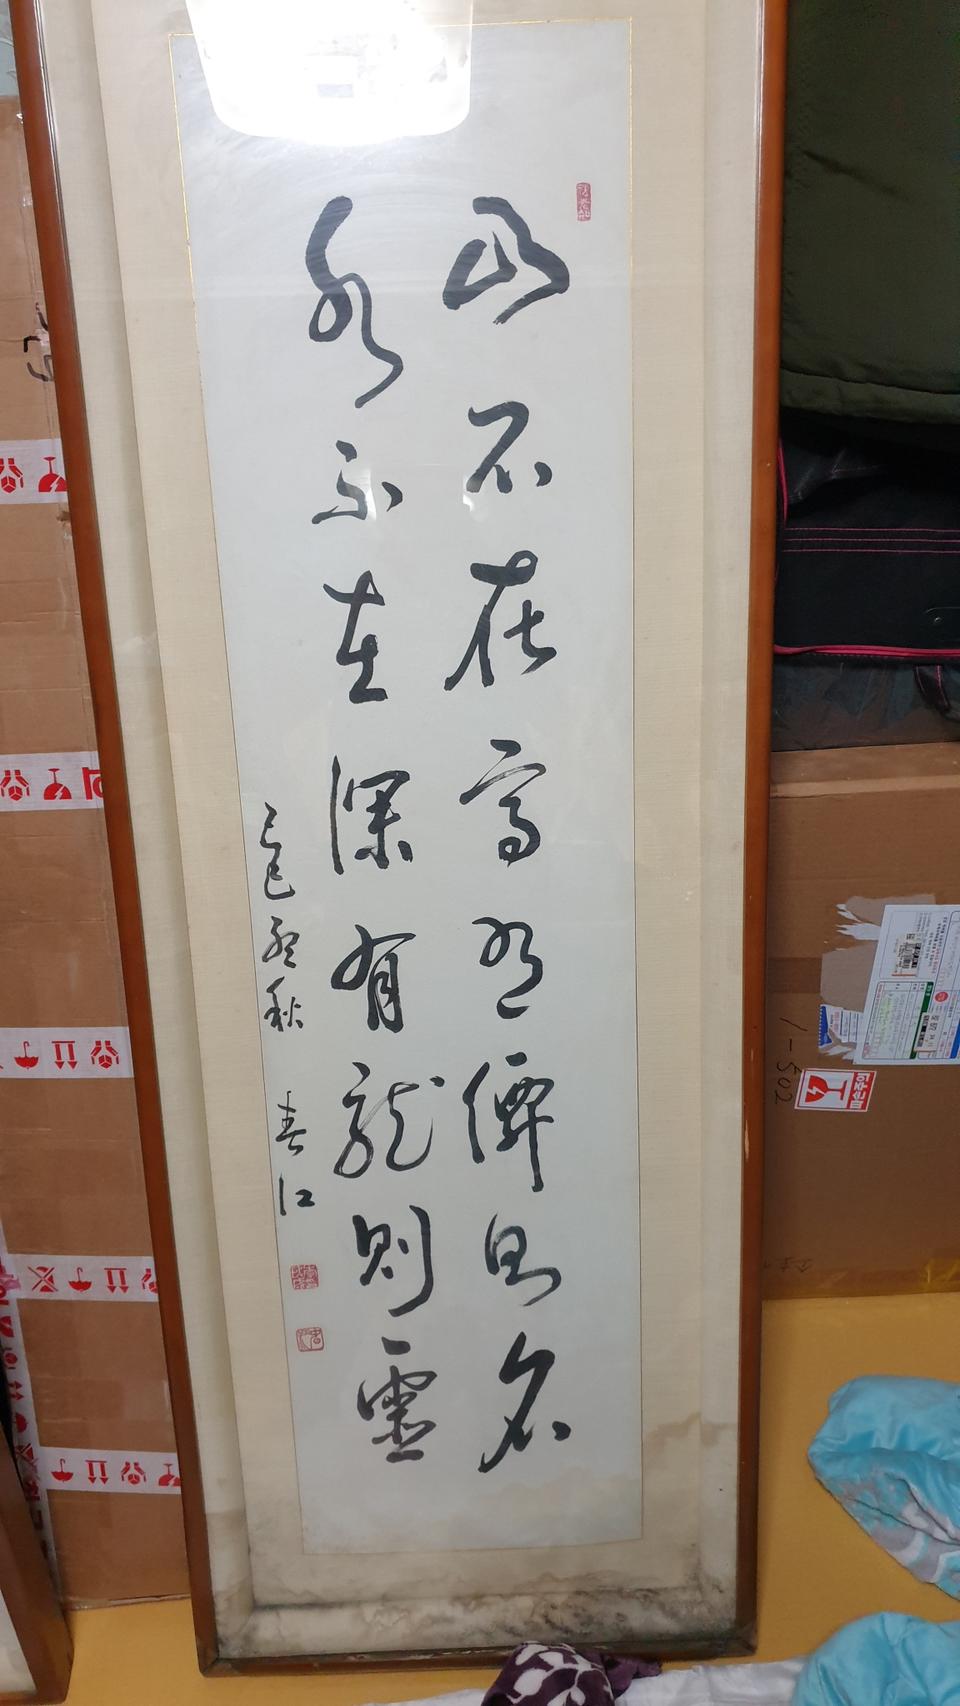 山不在高有僊則名
水不在深有龍則靈
己巳 秋 春江
1-502
파손주의